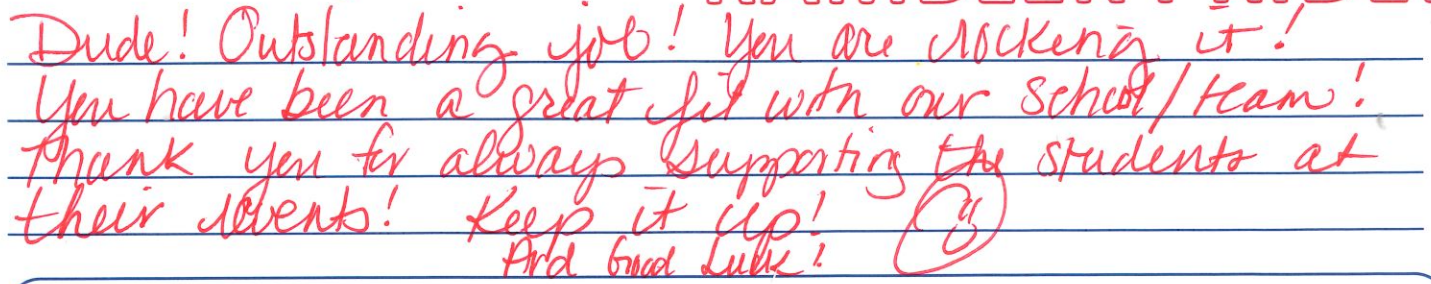 Dude! Outstanding job! You are rocking it!
You have been a great fit with our school/team!
Thank you for always supporting the students at
their events! Keep it up!
And Good Luck!